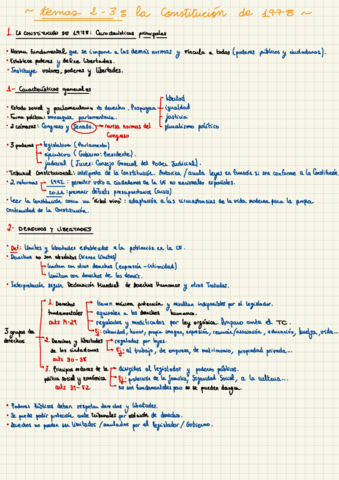 ~ temas 2-3: la Constitución de 1978 ~
1. LA CONSTITUCIÓN DE 1978: Características principales
• Norma fundamental que se impone a las demás normas y vincula a todos (poderes públicos y ciudadanos).
• Establece poderes y define libertades.
• Instituye valores, poderes y libertades.
1- Características generales
• Estado social y parlamentario de derecho. Propugnan
libertad
igualdad
justicia
pluralismo político
• Forma política: monarquía parlamentaria.
• 2 cámaras: Congreso y Senado. → revisa normas del
Congreso
• 3 poderes
legislativo (Parlamento)
ejecutivo (Gobierno: Presidente).
judicial (Jueces: Consejo General del Poder Judicial).
• Tribunal Constitucional: intérprete de la Constitución. Autoriza / anula leyes en función si son conforme a la Constitución
• 2 reformas
1992: permitir voto a ciudadanos de la UE no nacionales españoles.
2011: prevenir déficits presupuestarios
• Leer la Constitución como un "árbol vivo": adaptación a las circunstancias de la vida moderna para la propia
continuidad de la Constitución.
2- DERECHOS Y LIBERTADES
• Def: límites y libertades establecidos a la
• Derechos no son absolutos (tienen límites)
limitan con otros derechos (expresión-intimidad)
limitan con derechos de los demás.
• Interpretación según Declaración Mundial de Derechos Humanos y otros Tratados.
3 grupos de
derechos
1. Derechos
fundamentales
arts 14-29
tienen máxima potencia y resultan indisponibles por el legislador.
equivalen a los derechos humanos.
regulados y modificados por ley orgánica. Amparo ante el TC.
Ej: intimidad, honor, propia imagen, expresión, reunión/asociación, educación, huelga, vida...
2. Derechos y libertades
de los ciudadanos
arts 30-38
regulados por leyes
Ej: al trabajo, de empresa, de matrimonio, propiedad privada...
3. Principios rectores de la
política social y económica
arts 39-52
dirigidos al legislador y poderes públicos.
Ej: protección de la familia, Seguridad Social, a la cultura...
no son fundamentales pero no se pueden negar.
• Poderes Públicos deben respetar derechos y libertades.
• Se puede pedir protección ante tribunales por violación de derechos.
• Derechos no pueden ser limitados / anulados por el legislador / Gobierno.